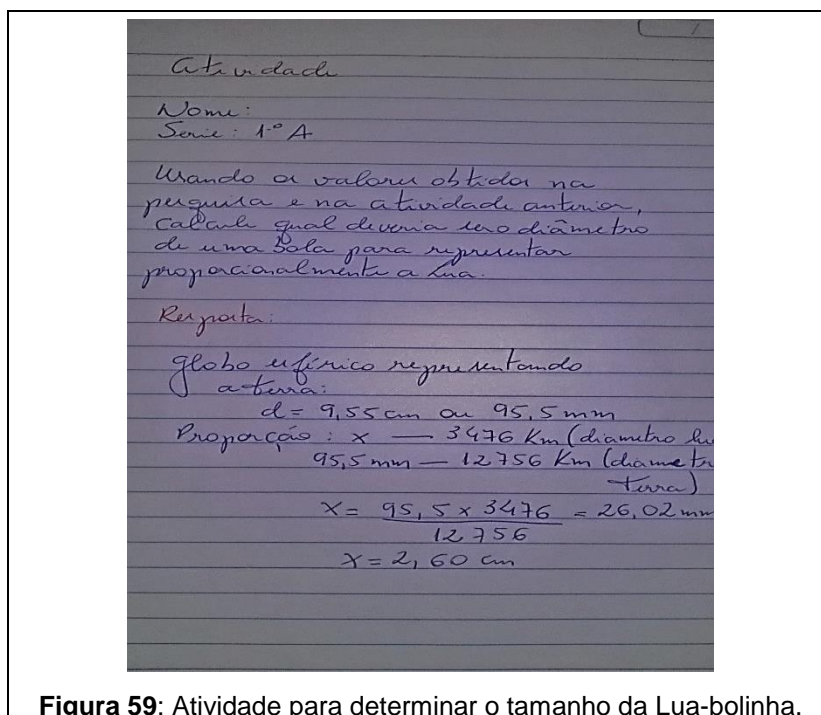 Atividade
Nome:
Serie: 1º A
Usando os valores obtidos na
pesquisa e na atividade anterior,
calcule qual deveria ser o diâmetro
de uma bola para representar
proporcionalmente a Lua.
Resposta:
globo esférico representando
a terra:
d = 9,55 cm ou 95,5 mm
Proporção: x — 3476 Km (diametro lu
95,5 mm — 12756 Km (diametr
terra)
x = 95,5 x 3476 = 26,02 mm
12756
x = 2,60 cm
Figura 59: Atividade para determinar o tamanho da Lua-bolinha.